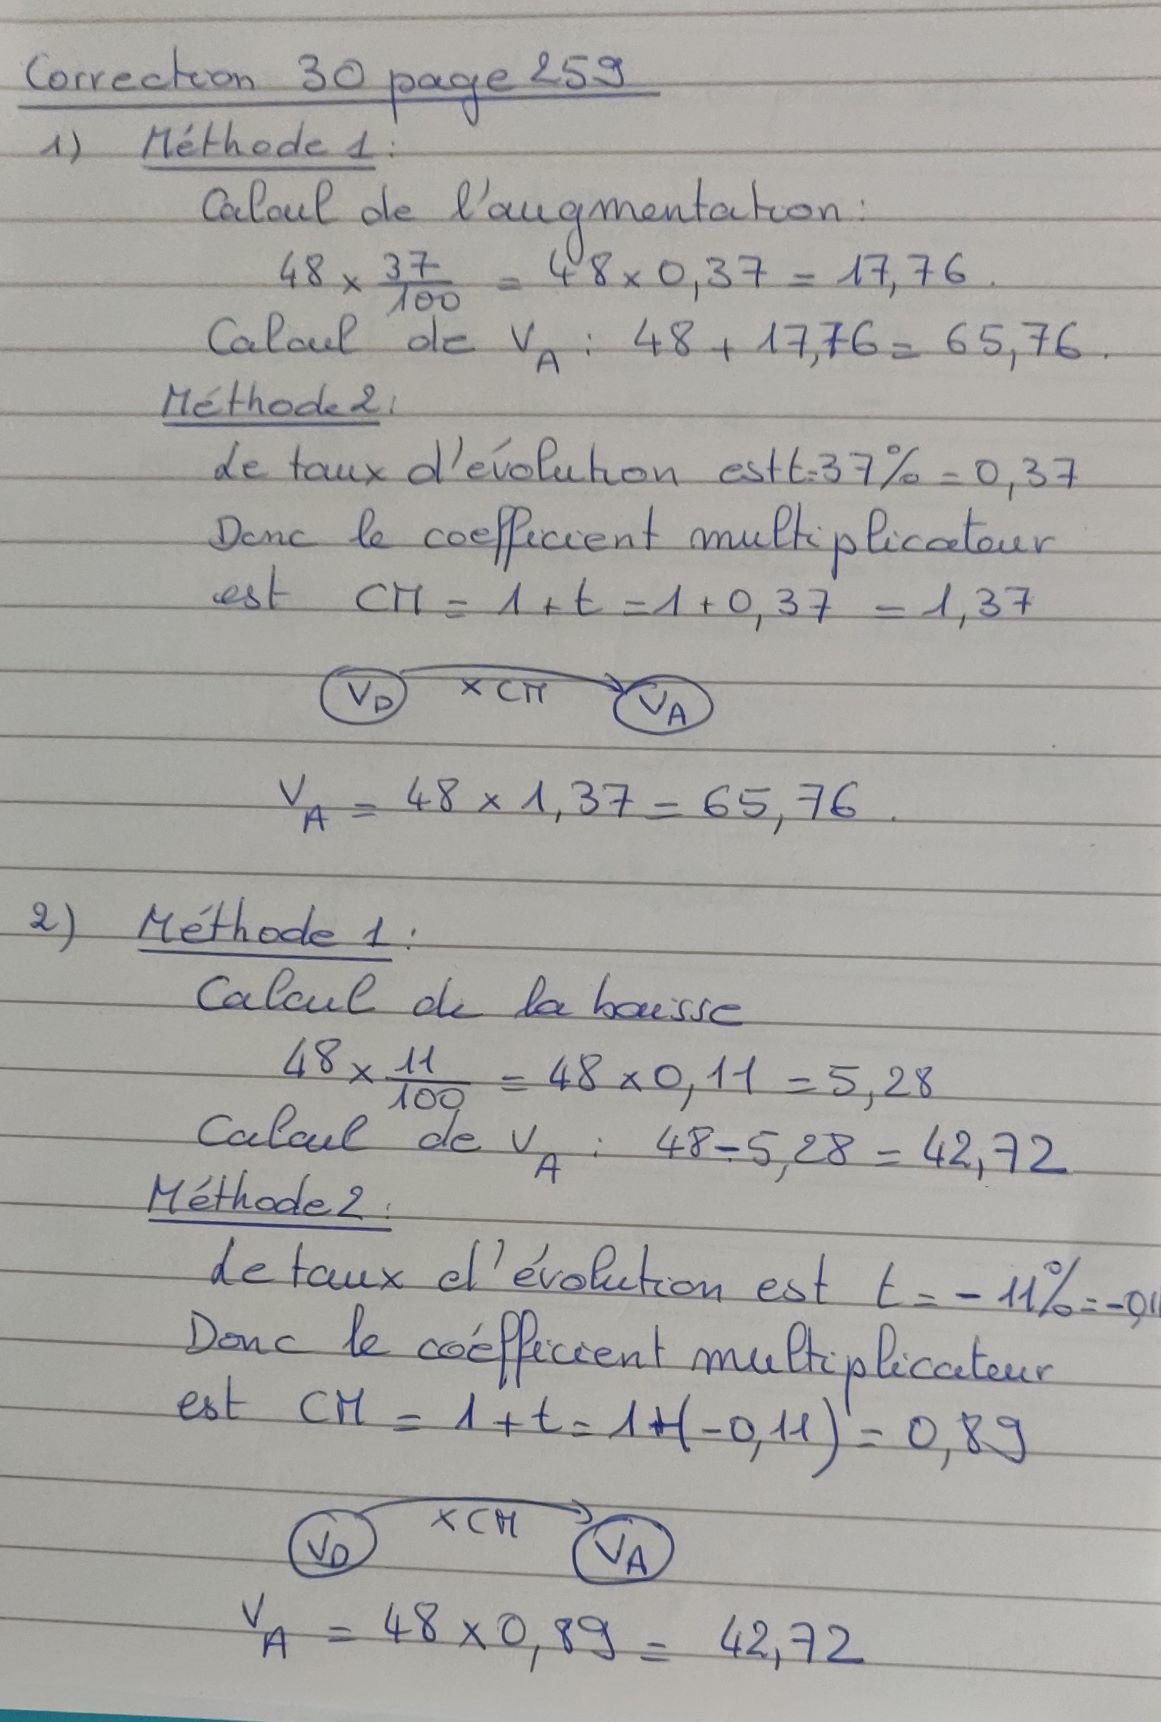 Correction 30 page 259
1) Méthode 1:
Calcul de l'augmentation:
48 × 37/100 = 48 × 0,37 = 17,76.
Calcul de V_A : 48 + 17,76 = 65,76.
Méthode 2:
Le taux d'évolution est t=37% = 0,37
Donc le coefficient multiplicateur
est CM = 1 + t = 1 + 0,37 = 1,37
V_D × CM V_A
V_A = 48 × 1,37 = 65,76.
2) Méthode 1:
Calcul de la baisse
48 × 11/100 = 48 × 0,11 = 5,28
Calcul de V_A : 48 - 5,28 = 42,72
Méthode 2:
Le taux d'évolution est t = -11% = -0,11
Donc le coéfficient multiplicateur
est CM = 1 + t = 1 + (-0,11) = 0,89
V_D × CM V_A
V_A = 48 × 0,89 = 42,72